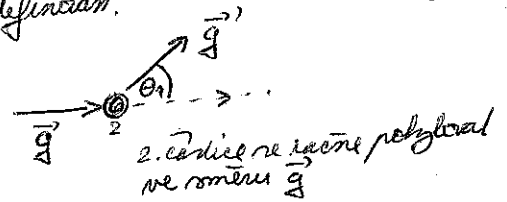 definován.
g⃗'
θ₁
g⃗
2
2. částice se začne pohybovat
ve směru g⃗